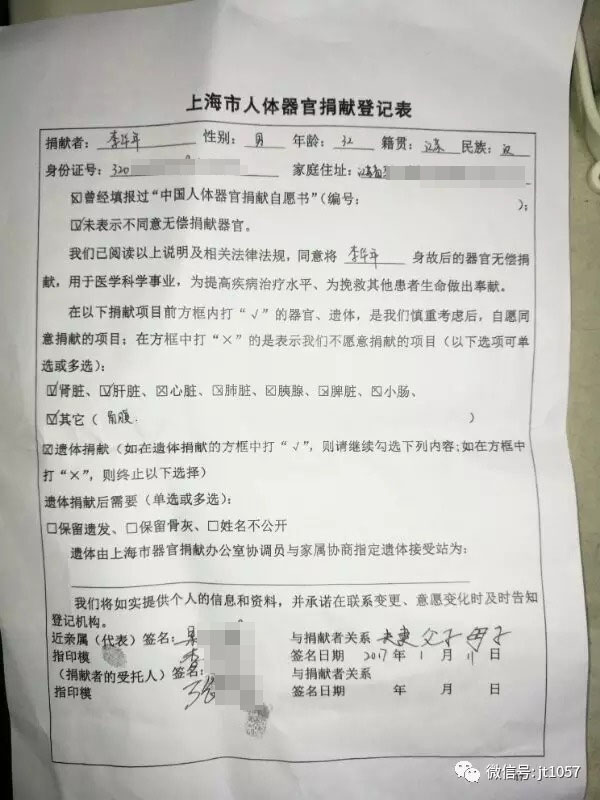 上海市人体器官捐献登记表
捐献者：李华年 性别：男 年龄：32 籍贯：江苏 民族：汉
身份证号：320 家庭住址：江苏省
☒曾经填报过“中国人体器官捐献自愿书”（编号： ）；
☑未表示不同意无偿捐献器官。
我们已阅读以上说明及相关法律法规，同意将 李华年 身故后的器官无偿捐
献，用于医学科学事业，为提高疾病治疗水平、为挽救其他患者生命做出奉献。
在以下捐献项目前方框内打“√”的器官、遗体，是我们慎重考虑后，自愿同
意捐献的项目；在方框中打“×”的是表示我们不愿意捐献的项目（以下选项可单
选或多选）：
☑肾脏、☑肝脏、☒心脏、☒肺脏、☒胰腺、☒脾脏、☒小肠、
☑其它（ 角膜. ）
☒遗体捐献（如在遗体捐献的方框中打“√”，则请继续勾选下列内容;如在方框中
打“×”，则终止以下选择）
遗体捐献后需要（单选或多选）：
☐保留遗发、☐保留骨灰、☐姓名不公开
遗体由上海市器官捐献办公室协调员与家属协商指定遗体接受站为：
我们将如实提供个人的信息和资料，并承诺在联系变更、意愿变化时及时告知
登记机构。
近亲属（代表）签名： 与捐献者关系 夫妻 父子 母子
指印模 李 签名日期 2017 年 1 月 11 日
（捐献者的受托人）签名： 与捐献者关系
指印模 张 签名日期 年 月 日
微信号: jt1057